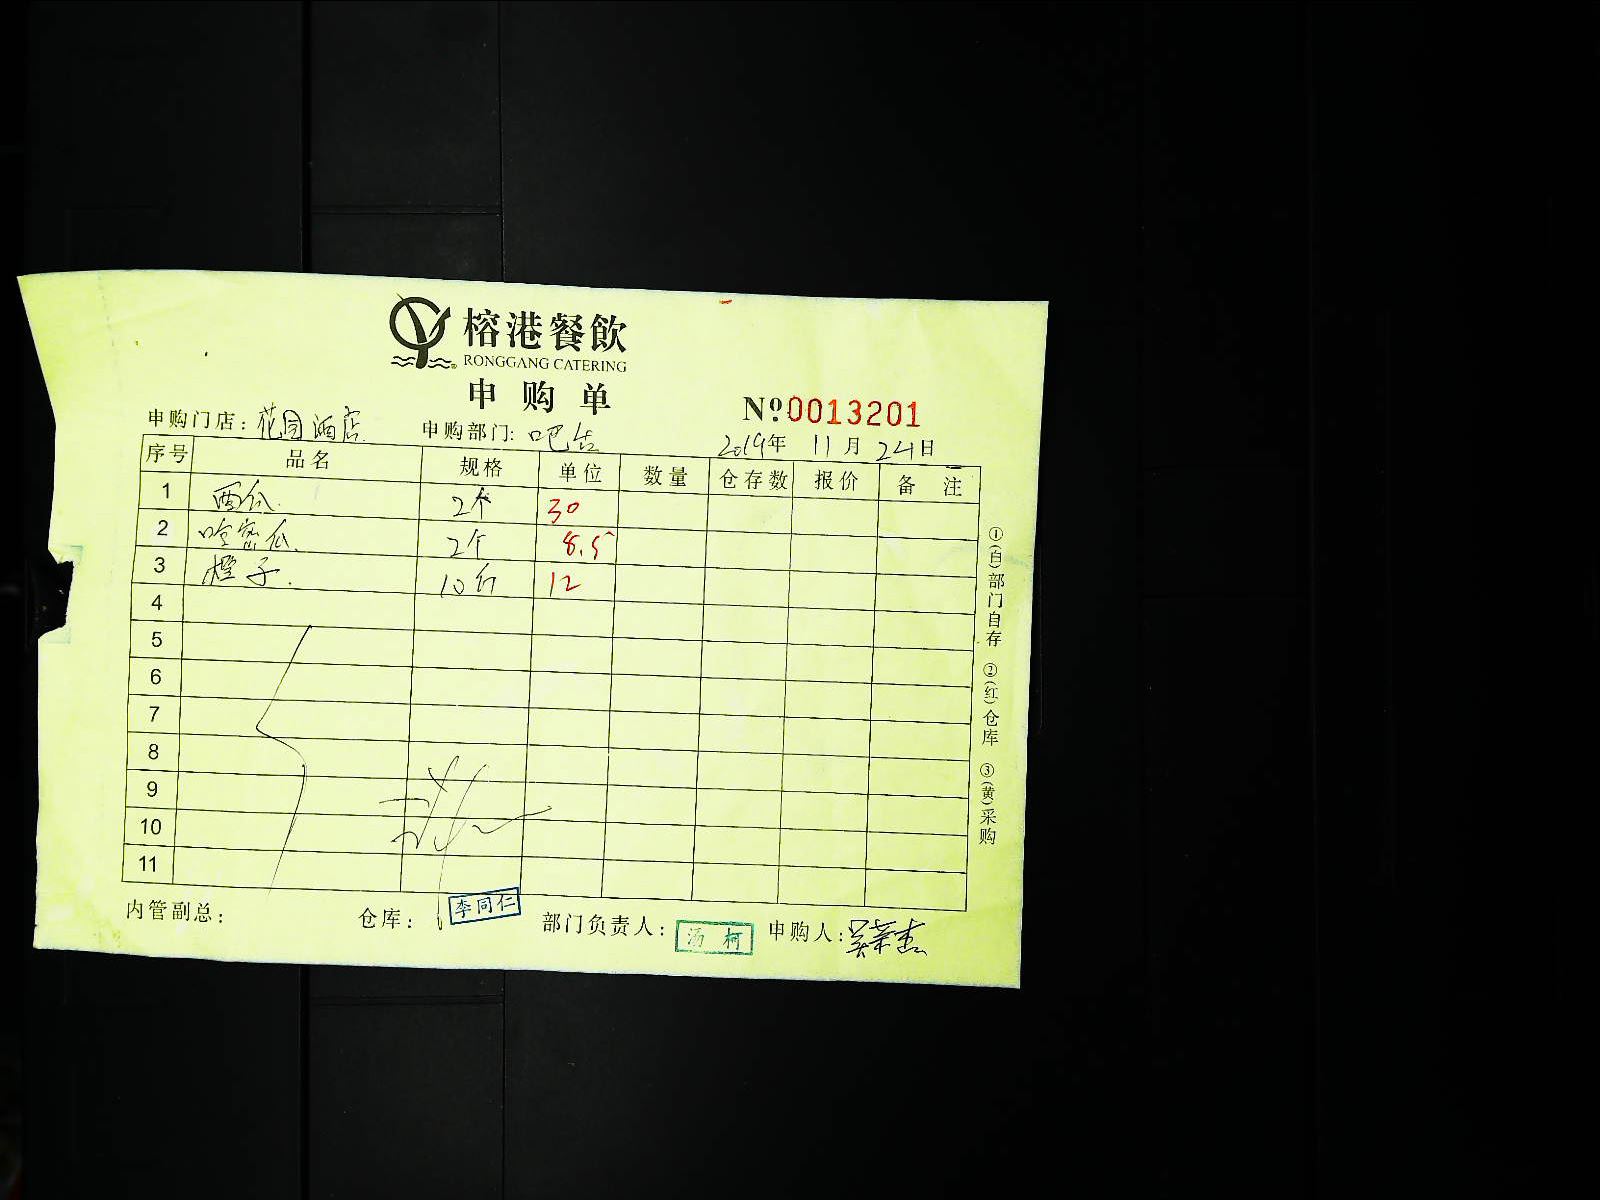 榕港餐飲
RONGGANG CATERING
申购单
№0013201
申购门店：花园酒店 申购部门：吧台 2019年 11月 24日
序号 品名 规格 单位 数量 仓存数 报价 备注
1 西瓜 2个 30
2 哈密瓜 2个 8.5
3 橙子 10斤 12
4
5
6
7
8
9
10
11
内管副总： 仓库：李同仁 部门负责人：汤柯 申购人：
①(白)部门自存 ②(红)仓库 ③(黄)采购